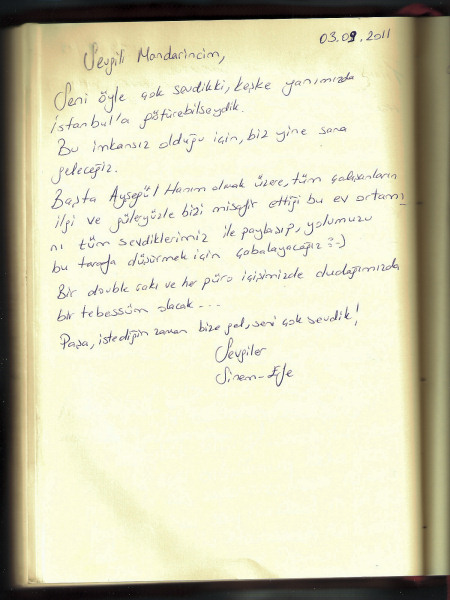 03.09.2011
Sevgili Mandarincim,
Seni öyle çok sevdikki, keşke yanımızda
İstanbul'a götürebilseydik.
Bu imkansız olduğu için, biz yine sana
geleceğiz.
Başta Ayşegül Hanım olmak üzere, tüm çalışanların
ilgi ve güleryüzle bizi misafir ettiği bu ev ortamı-
nı tüm sevdiklerimiz ile paylaşıp, yolumuzu
bu tarafa düşürmek için çabalayacağız :-)
Bir double çakı ve her püro içişimizde dudağımızda
bir tebessüm olacak...
Paşa, istediğin zaman bize gel, seni çok sevdik!
Sevgiler
Sinem-Efe